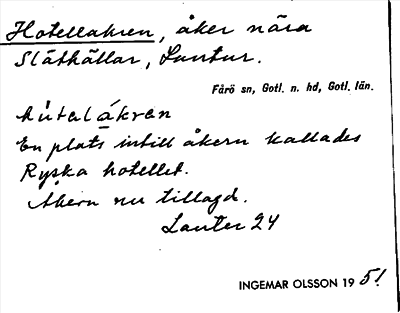 Hotellakren, åker nära
Släthällar, Lautur.
Fårö sn, Gotl. n. hd, Gotl. län.
hùtälákrän
En plats intill åkern kallades
Ryska hotellet.
Åkern nu tillagd.
Lauter 24
INGEMAR OLSSON 19 51